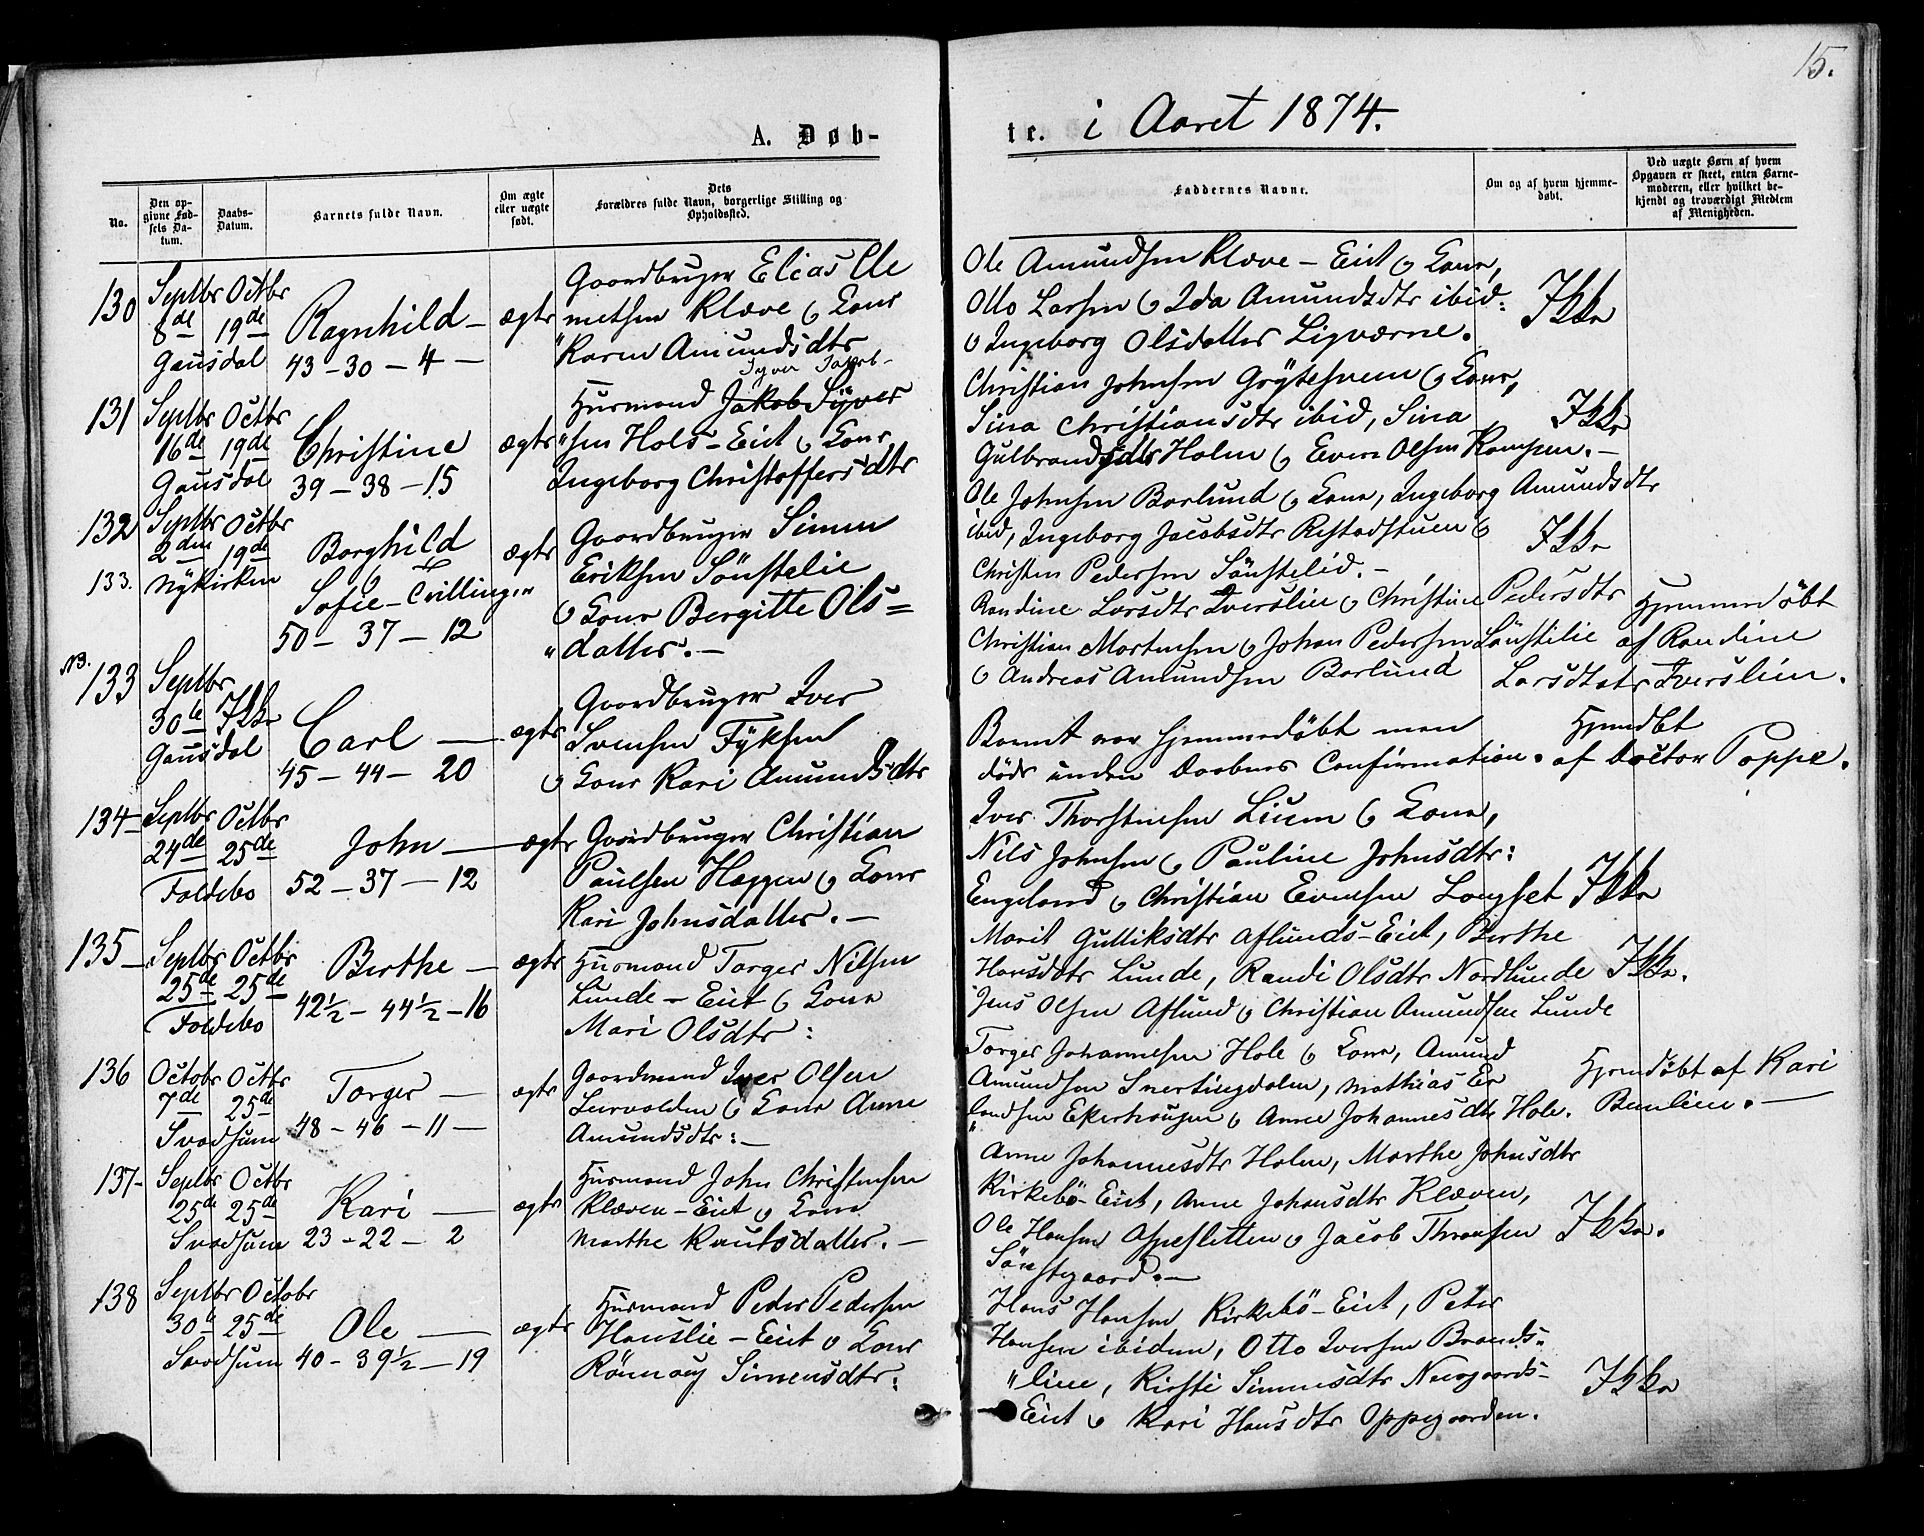 15.
A. Døb-
te. i Aaret 1874.
No.
Den op-
givne Fød-
sels Da-
tum.
Daabs-
Datum.
Barnets fulde Navn.
Om ægte
eller uægte
født.
Dets
Forældres fulde Navn, borgerlige Stilling og
Opholdssted.
Faddernes Navne.
Om og af hvem hjemme-
døbt.
Ved uægte Børn af hvem
Opgaven er skeet, enten Barne-
moderen, eller hvilket be-
kjendt og troværdigt Medlem
af Menigheden.
130
Septbr Octbr
8de 19de
Gausdal
Ragnhild —
43 - 30 - 4 —
ægte
Gaardbruger Elias Cle
metsen Kleve & Kone
"Karen Amundsdtr
Ole Amundsen Kleve - Eiet & Kone,
Otto Larsen & Ida Amundsdtr ibid:
& Ingeborg Olsdatter Ligværne.
Ikke
131
Septbr Octbr
16de 19de
Gausdal
Christine
39 - 38 - 15
ægte
Syver Jakob-
Husmand Jakob Syver
"sen Hols - Eiet & Kone
Ingeborg Christoffersdtr
Christian Johnsen Grÿtesveen & Kone,
Sina Christiansdtr ibid, Sina
Gulbrandsdtr Holm & Even Olsen Kampen. —
Ikke
132
Septbr Octbr
2den 19de
133. Nÿkirken
Borghild
&
Sofie - Tvillinger
50 - 37 - 12
ægte
Gaardbruger Simen
Eriksen Sönstelie
& Kone Bergitte Ols=
"datter. —
Ole Johnsen Barlund & Kone, Ingeborg Amundsdtr
ibid, Ingeborg Jacobsdtr Restadstuen &
Christen Pedersen Sönstelid. —
Ikke
Randine Larsdtr Iverslien & Christine Pedersdtr
Christian Mortensen & Johan Pedersen Sönstelie
& Andreas Amundsen Barlund
Hjemmedöbt
af Randine
Larsdtatr Iverslien.
NB.
133
Septbr
30te Ikke
Gausdal
Carl —
45 - 44 - 20
ægte
Gaardbruger Iver
Svensen Fÿksen
& Kone Kari Amundsdtr
Barnet var hjemmedöbt men
döde inden Daabens Confirmation.
Hjemdbt
af Doctor Poppe.
134
Septbr Octbr
24de 25de
Foldebo
John —
52 - 37 - 12
ægte
Gaardbruger Christian
Paulsen Haggen & Kone
Kari Johnsdatter. —
Iver Thorstensen Lium & Kone,
Nils Johnsen & Pauline Johnsdtr:
Engeland & Christian Evensen Longset
Ikke
135
Septbr Octbr
25de 25de
Foldebo
Berthe —
42½ - 44½ - 16
ægte
Husmand Torger Nilsen
Lunde - Eiet & Kone
Mari Olsdtr:
Marit Gulliksdtr Aflunds - Eiet, Berthe
Hansdtr Lunde, Randi Olsdtr Nordlunde
Jens Olsen Aflund & Christian Amundsen Lunde
Ikke.
136
Octobr Octbr
7de 25de
Svadsum
Torger —
48 - 46 - 11 —
ægte
Gaardmand Iver Olsen
Leervolden & Kone Anne
Amundsdtr: —
Torger Johannesen Hole & Kone, Amund
Amundsen Snertingdalen, Mathias Er
landsen Ekerhaugen & Anne Johannesdtr Hole.
Hjemdöbt af Kari
Benlien. —
137
Septbr Octbr
25de 25de
Svadsum
Kari —
23 - 22 - 2
ægte
Husmand John Christensen
Kleven - Eiet & Kone
Marthe Knutsdatter. —
Anne Johannesdtr Holen, Marthe Johnsdtr
Kirkebö - Eiet, Anne Johansdtr Kleven,
Ole Hansen Aspesletten & Jacob Thronsen
Sönstegaard. —
Ikke.
138
Septbr Octobr
30te 25de
Svadsum
Ole —
40 - 39½ - 19
ægte
Husmand Peder Pedersen
Hauslie - Eiet & Kone
Rönnoug Simensdtr:
Hans Hansen Kirkebö - Eiet, Peter
Hansen ibidem, Otto Iversen Brands-
"liie, Kirsti Simensdtr Neergaards-
Eiet & Kari Hansdtr Oppegaarden.
Ikke